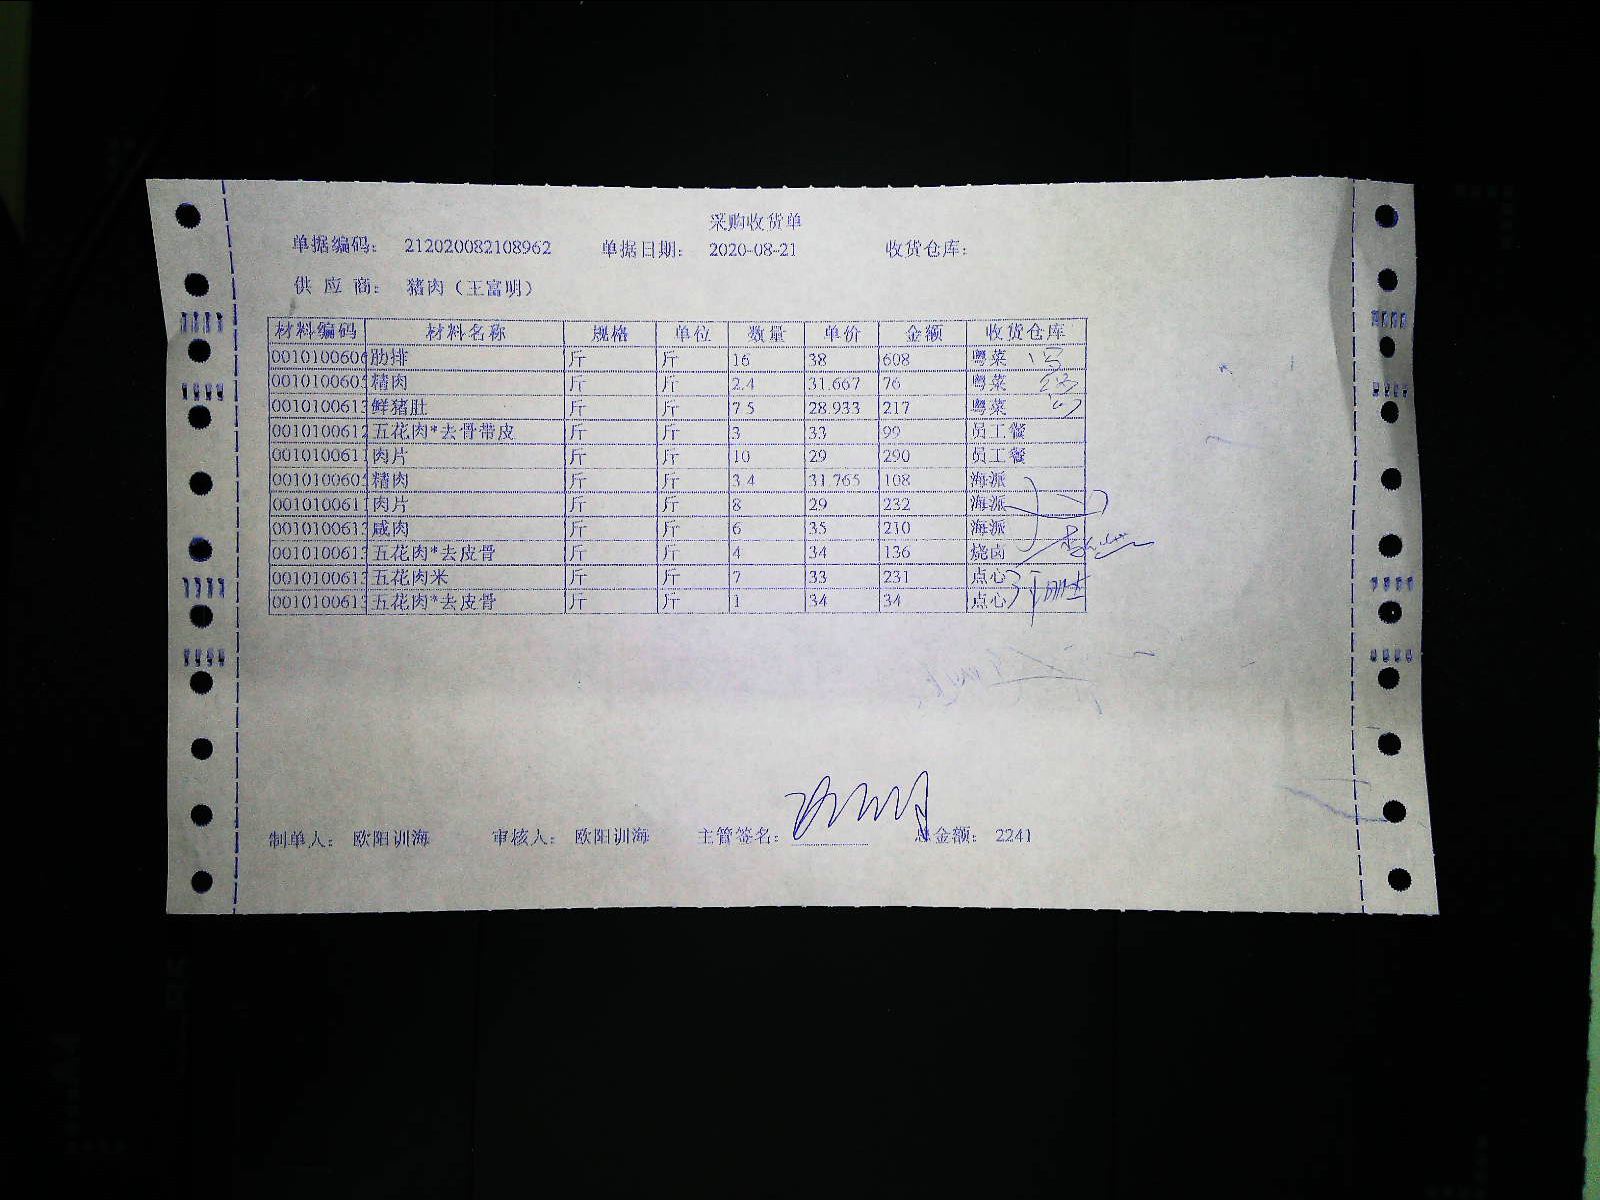 采购收货单
单据编码： 212020082108962 单据日期： 2020-08-21 收货仓库：
供 应 商： 猪肉（王富明）
材料编码 材料名称 规格 单位 数量 单价 金额 收货仓库
0010100606 肋排 斤 斤 16 38 608 粤菜
001010060 精肉 斤 斤 2.4 31.667 76 粤菜
001010061 鲜猪肚 斤 斤 7.5 28.933 217 粤菜
0010100612 五花肉*去骨带皮 斤 斤 3 33 99 员工餐
001010061 肉片 斤 斤 10 29 290 员工餐
001010060 精肉 斤 斤 3.4 31.765 108 海派
001010061 肉片 斤 斤 8 29 232 海派
001010061 咸肉 斤 斤 6 35 210 海派
001010061 五花肉*去皮骨 斤 斤 4 34 136 烧卤
001010061 五花肉米 斤 斤 7 33 231 点心
001010061 五花肉*去皮骨 斤 斤 1 34 34 点心
制单人： 欧阳训海 审核人： 欧阳训海 主管签名： 总金额： 2241